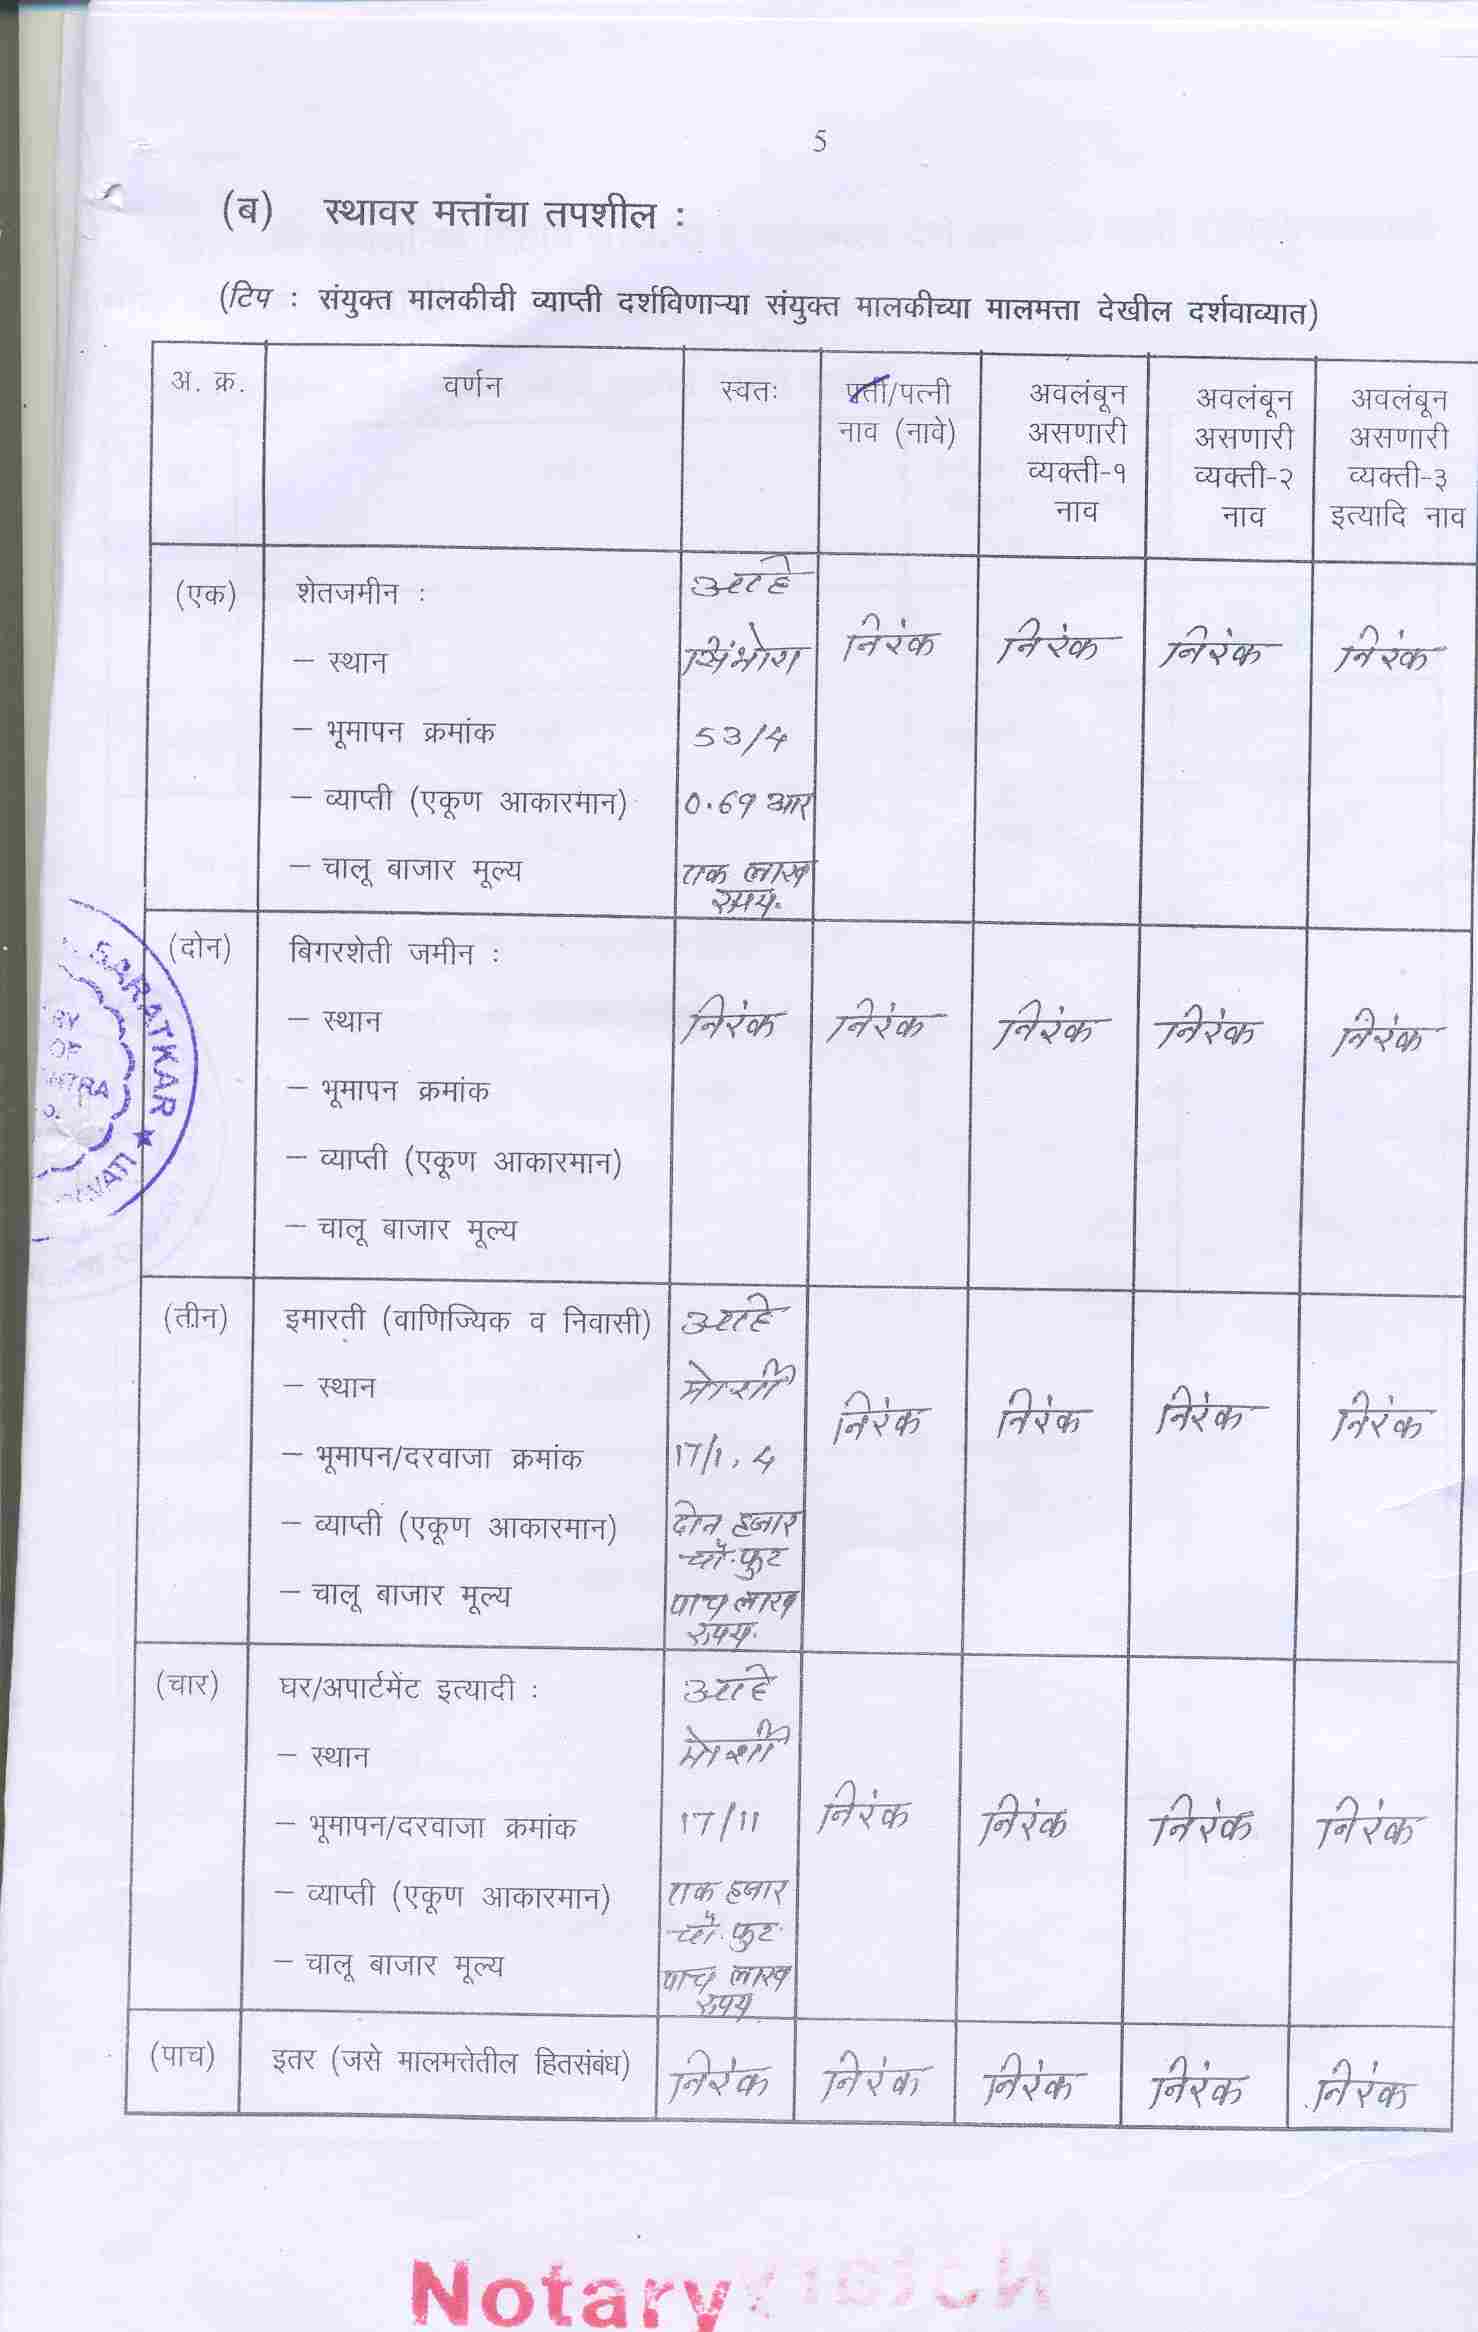 5
(ब) स्थावर मत्तांचा तपशील :
(टिप : संयुक्त मालकीची व्याप्ती दर्शविणाऱ्या संयुक्त मालकीच्या मालमत्ता देखील दर्शवाव्यात)
अ. क्र. वर्णन स्वतः पती/पत्नी नाव (नावे) अवलंबून असणारी व्यक्ती-१ नाव अवलंबून असणारी व्यक्ती-२ नाव अवलंबून असणारी व्यक्ती-३ इत्यादि नाव
(एक) शेतजमीन : आहे
– स्थान सिंभोरा निरंक निरंक निरंक निरंक
– भूमापन क्रमांक 53/4
– व्याप्ती (एकूण आकारमान) 0.69 आर
– चालू बाजार मूल्य एक लाख
रुपये.
(दोन) बिगरशेती जमीन :
– स्थान निरंक निरंक निरंक निरंक निरंक
– भूमापन क्रमांक
– व्याप्ती (एकूण आकारमान)
– चालू बाजार मूल्य
(तीन) इमारती (वाणिज्यिक व निवासी) आहे
– स्थान मोर्शी निरंक निरंक निरंक निरंक
– भूमापन/दरवाजा क्रमांक 17/1, 4
– व्याप्ती (एकूण आकारमान) दोन हजार
चौ. फुट
– चालू बाजार मूल्य पाच लाख
रुपये.
(चार) घर/अपार्टमेंट इत्यादी : आहे
– स्थान मोर्शी
– भूमापन/दरवाजा क्रमांक 17/11 निरंक निरंक निरंक निरंक
– व्याप्ती (एकूण आकारमान) एक हजार
चौ. फुट
– चालू बाजार मूल्य पाच लाख
रुपये
(पाच) इतर (जसे मालमत्तेतील हितसंबंध) निरंक निरंक निरंक निरंक निरंक
GARATKAR
OF
Notary